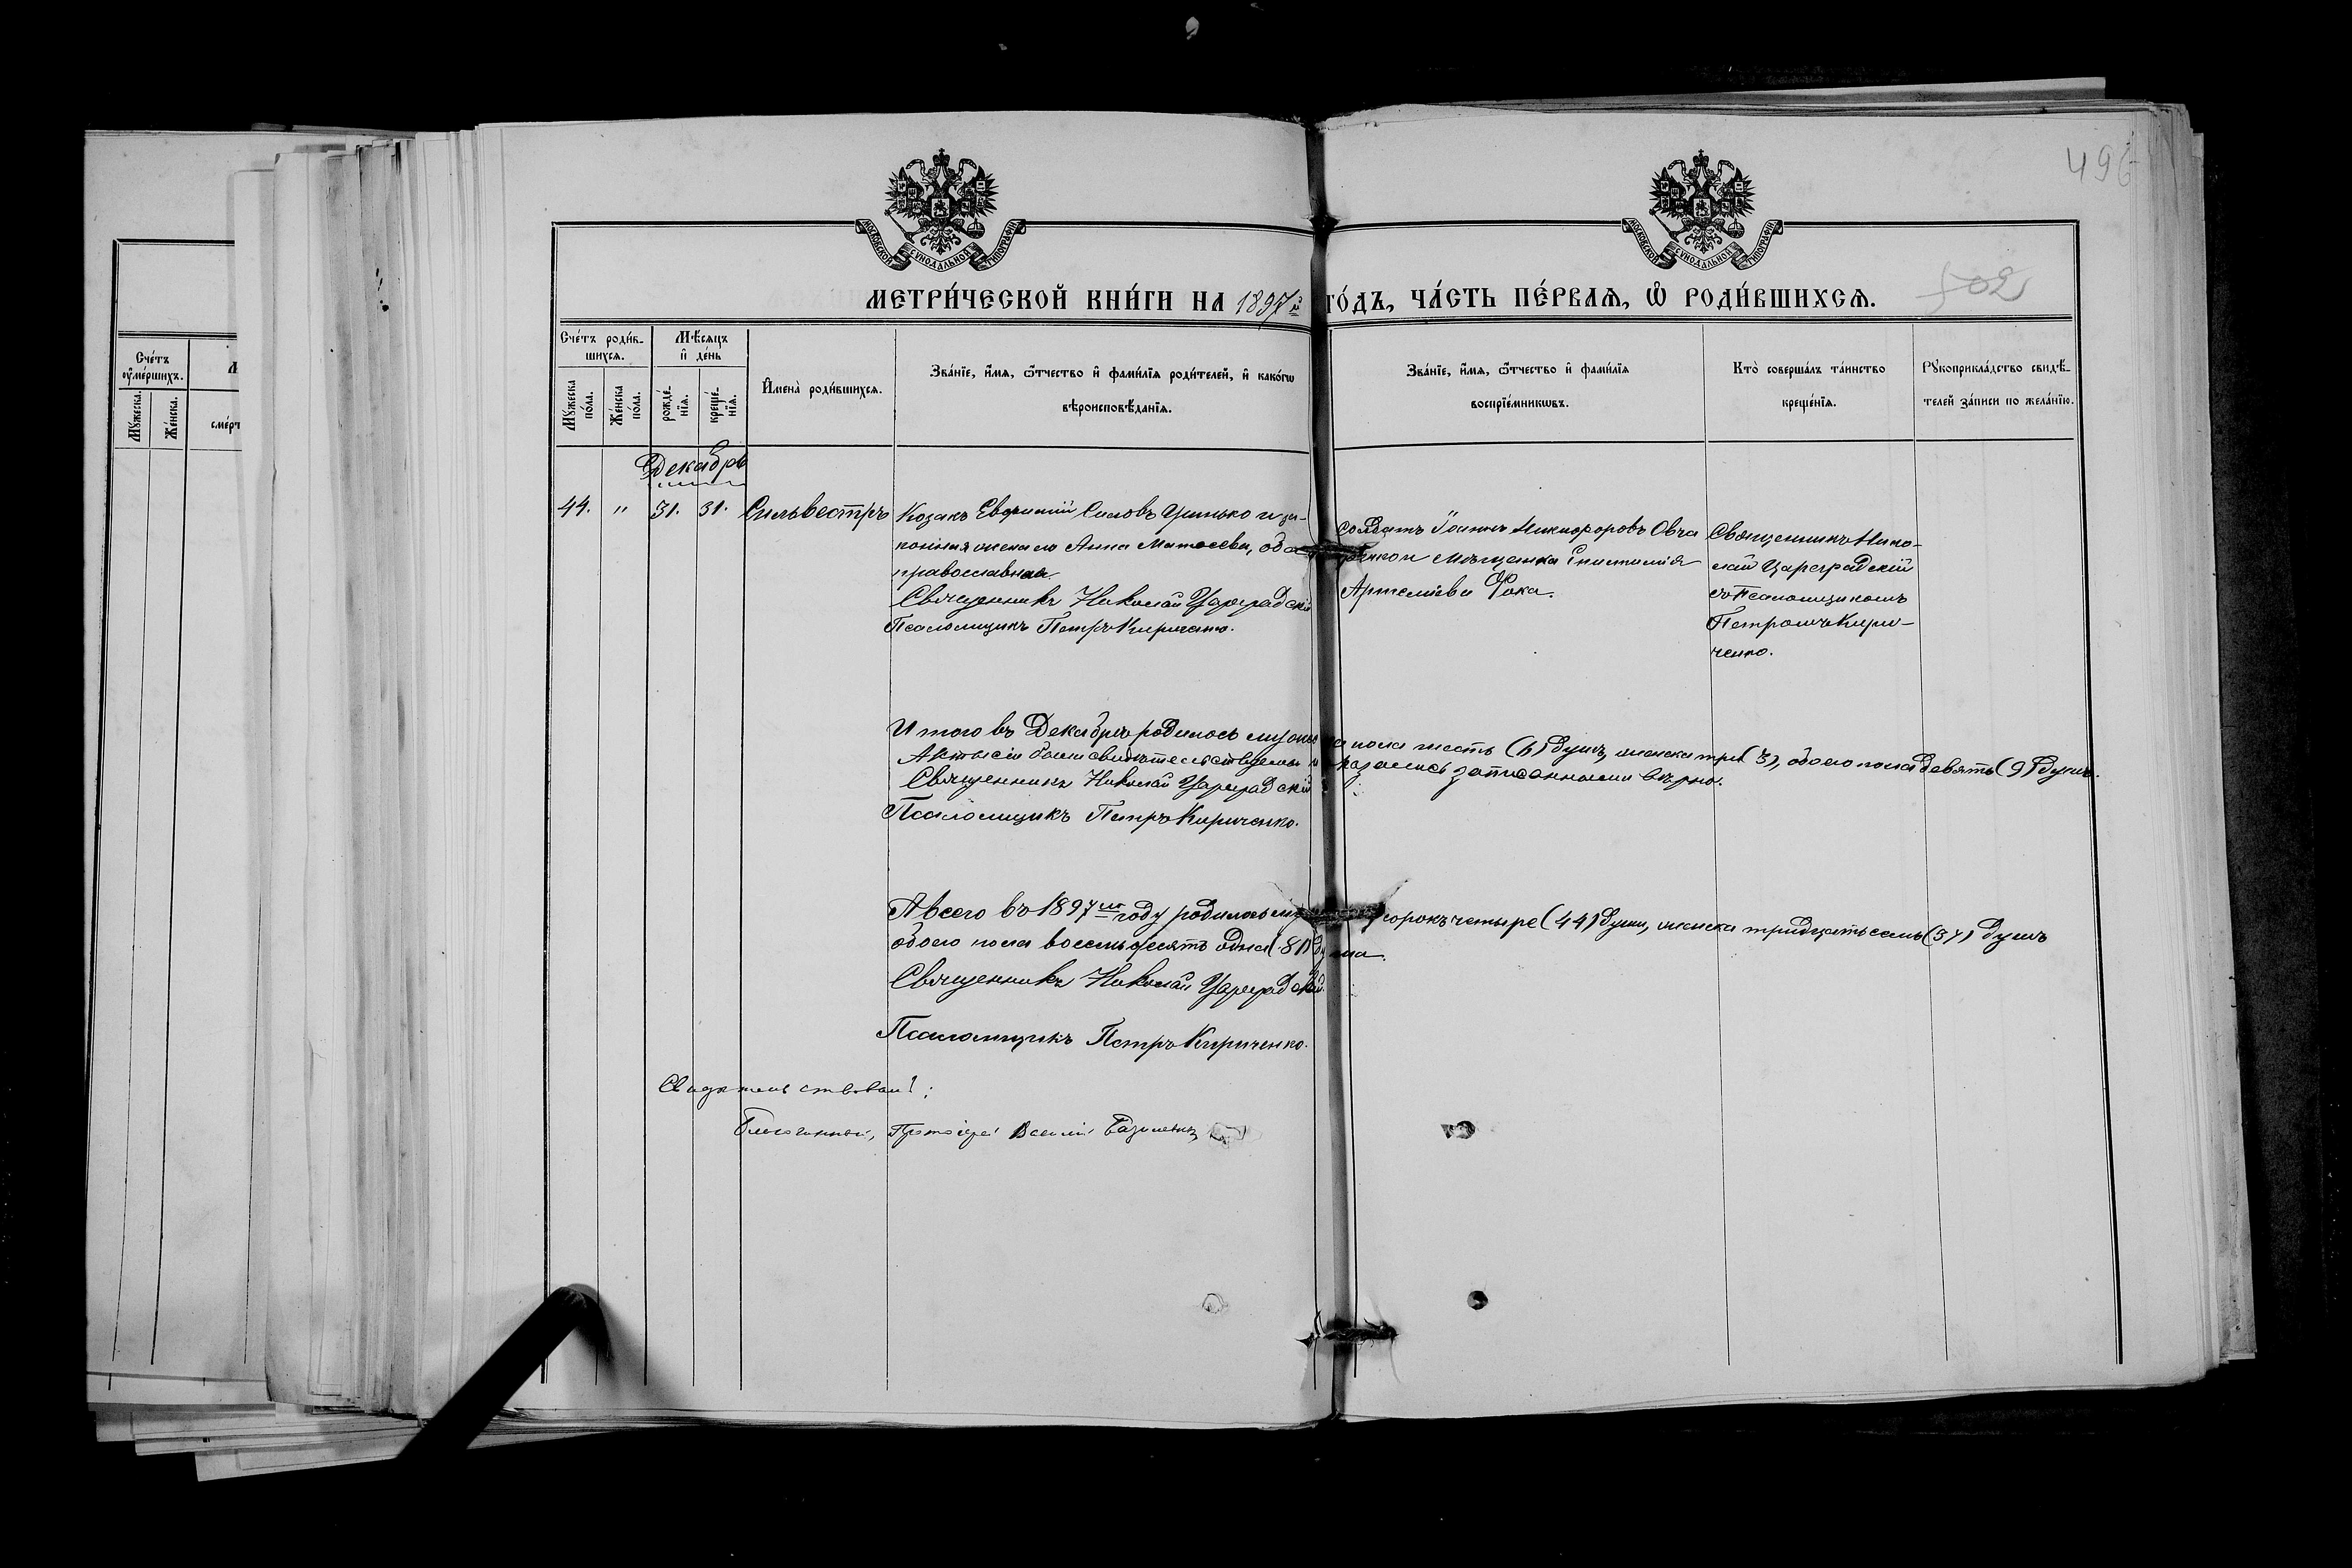 496
502
МОСКОВСКОЙ СѴНОДАЛЬНОЙ ТИПОГРАФІИ
МОСКОВСКОЙ СѴНОДАЛЬНОЙ ТИПОГРАФІИ
МЕТРИ́ЧЕСКОЙ КНИ́ГИ НА 1897й ГО́ДЪ, ЧА́СТЬ ПЕ́РВАЯ, Ѽ РОДИ́ВШИХСЯ.
Сче́тъ оу҆ме́ршихъ.
Мꙋ́жеска.
Же́нска.
сме́рт
Сче́тъ роди́в-
шихся.
Мꙋ́жеска по́ла.
Же́нска по́ла.
Мѣ́сяцъ и҆ де́нь
рожде́-
нїя.
креще́-
нїя.
И҆мена̀ роди́вшихся.
Зва́нїе, и҆́мя, ѻ҆́тчество и҆ фами́лїя роди́телей, и҆ како́гѡ
вѣроисповѣ́данїя.
Зва́нїе, и҆́мя, ѻ҆́тчество и҆ фами́лїя
воспрїе́мникѡвъ.
Кто̀ соверша́лъ та́инство
креще́нїя.
Рꙋкоприкла́дство свидѣ́-
телей за́писи по жела́нїю.
Декабрь
44. " 31. 31. Сильвестръ
Козакъ Евфимій Силовъ Цинько и за-
конная жена его Анна Матөеева, оба
православные.
Священникъ Николай Цареградскій
Псаломщикъ Петръ Кириченко.
Солдатъ Іоаннъ Никифоровъ Овча
ренко и мѣщанка Епистимія
Артеміева Фока.
Священникъ Нико-
лай Цареградскій
съ Псаломщикомъ
Петромъ Кири-
ченко.
Итого въ Декабрѣ родилось мужеска пола шесть (6) душъ, женска три (3), обоего пола девять (9) душъ.
Акты сіи были свидѣтельствуемы и оказались записанными вѣрно.
Священникъ Николай Цареградскій
Псаломщикъ Петръ Кириченко.
А всего въ 1897мъ году родилось сорокъ четыре (44) души, женска тридцать семь (37) душъ
обоего пола восемьдесятъ одна (81) душа.
Священникъ Николай Цареградскій.
Псаломщикъ Петръ Кириченко.
Свидѣтельствовалъ:
Благочинный, Протоіерей Василій Базилевичъ